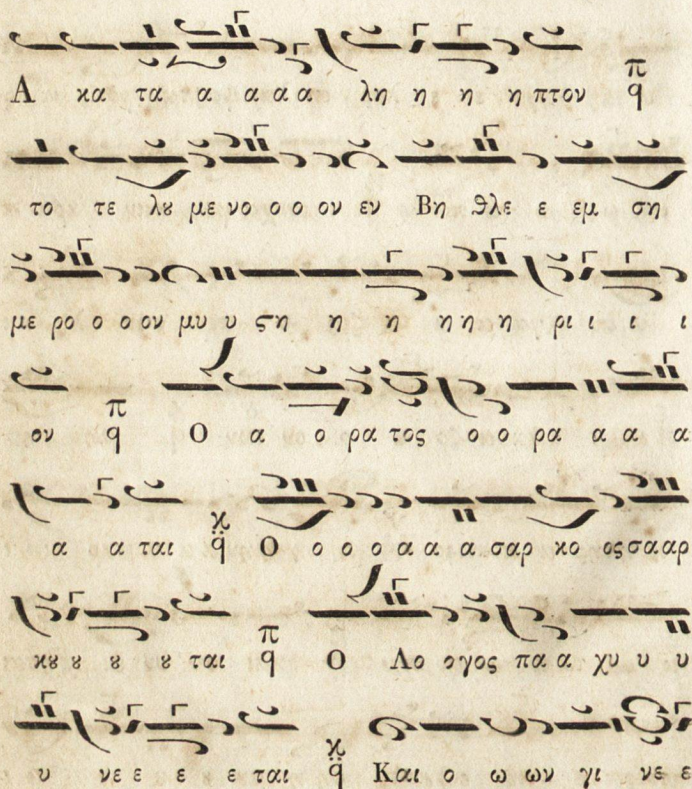 Α κα τα α α α α λη η η η ηπτον π q
το τε λȣ με νο ο ο ον εν Βη ϑλε ε εμ ση
με ρο ο ο ον μυ υ ϛη η η η η η ρι ι ι ι
ον π q Ο α ο ρα τος ο ο ρα α α α
α α ται ϗ q̈ Ο ο ο ο α α α σαρ κο οςσααρ
κȣ ȣ ȣ ȣ ται π q Ο Λο ογος πα α χυ υ υ
υ νε ε ε ε ται ϗ q̈ Και ο ω ων γι νε ε